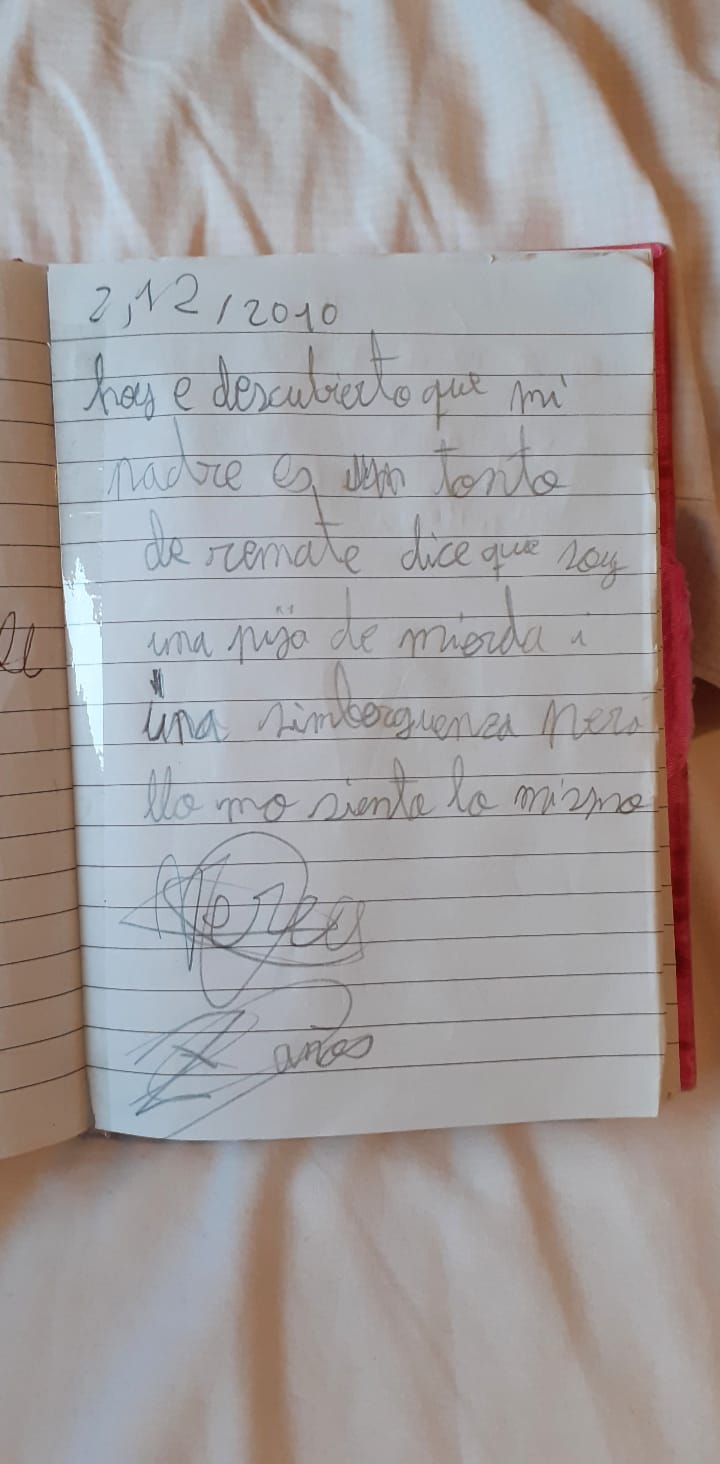 2,12/2010
hoy e descubierto que mi
padre es un tonto
de remate dice que soy
una pija de mierda i
una simberguenza pero
llo mo siento lo mismo
Nerea
7 años